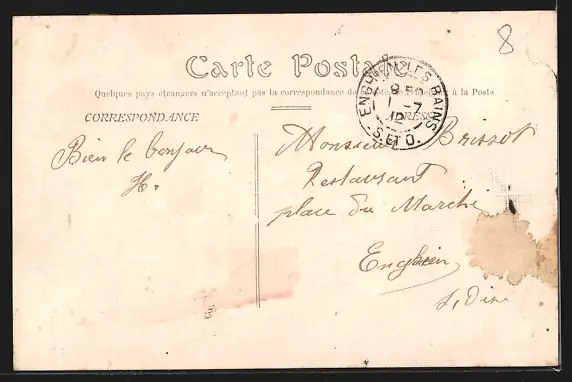 8
Carte Postale
Quelques pays étrangers n'acceptant pas la correspondance de ce côté, se renseigner à la Poste
CORRESPONDANCE
ADRESSE
ENGHIEN-LES-BAINS
1 -7
12
S. ET O.
Bien le bonjour
H.
Monsieur Brissot
Restaurant
place du Marché
Enghien
S, Oise